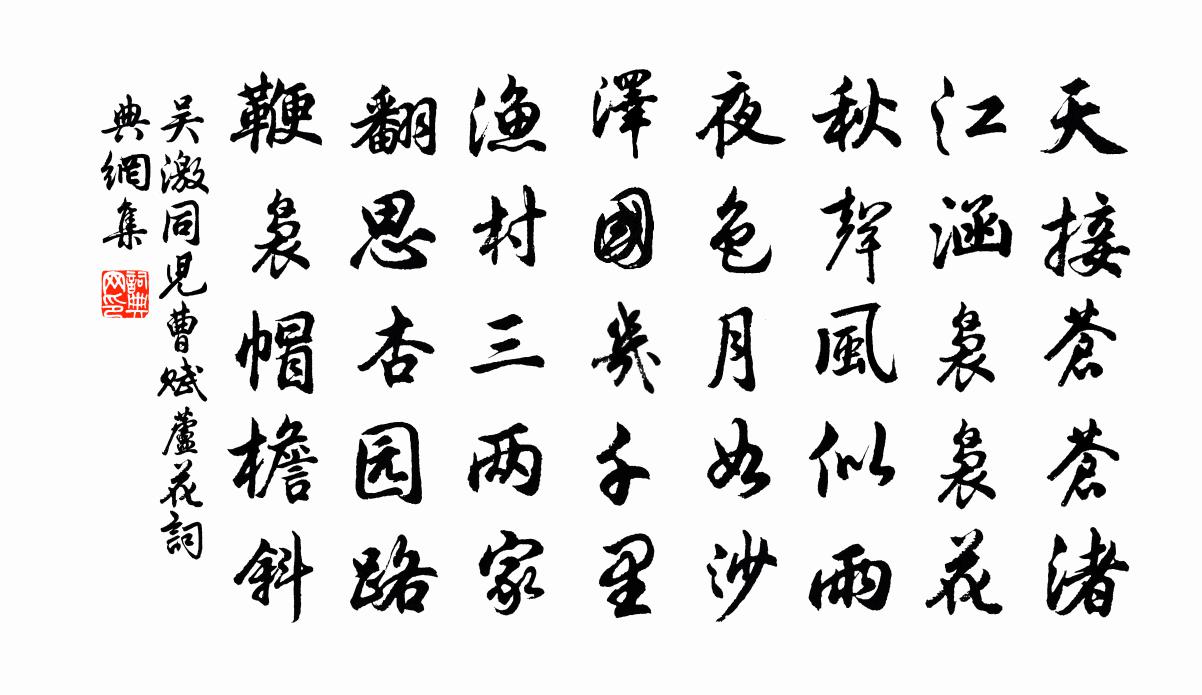 天接蒼蒼渚
江涵裊裊花
秋聲風似雨
夜色月如沙
澤國幾千里
漁村三两家
翻思杏园路
鞭裊帽檐斜
吴激同児曹赋蘆花詞
典網集
詞典
网印